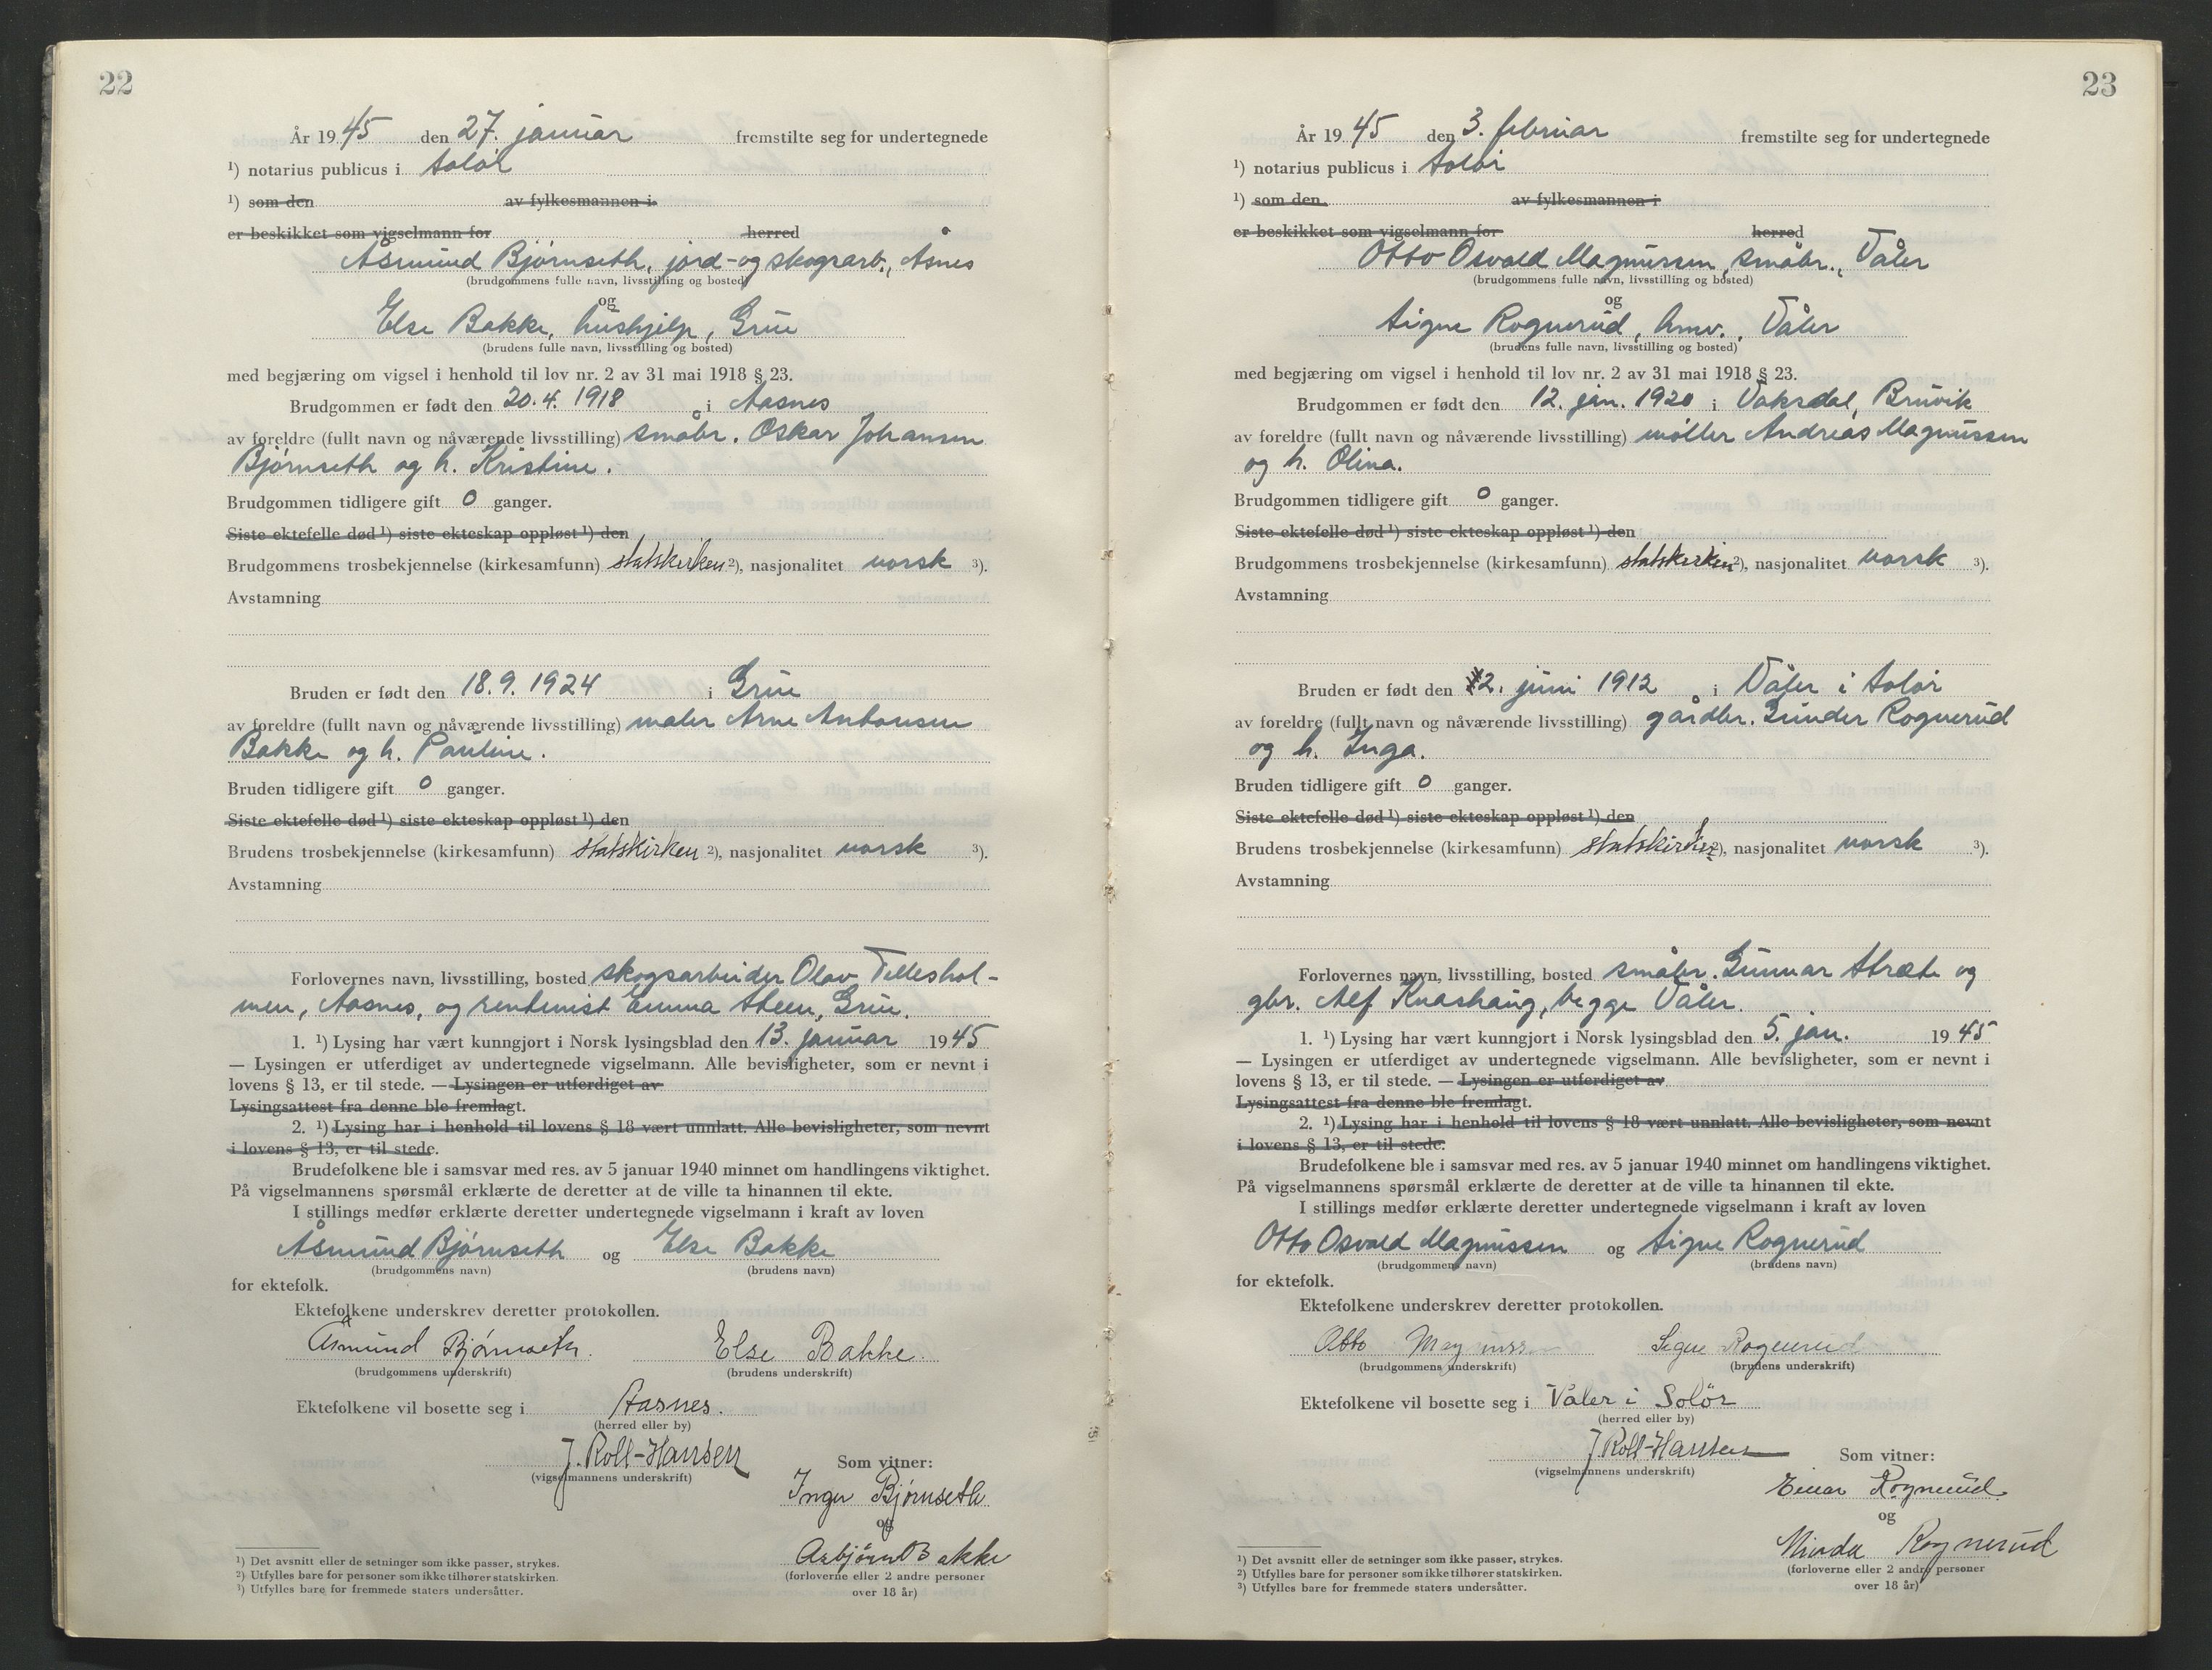 22
År 1945 den 27. januar fremstilte seg for undertegnede
¹) notarius publicus i Solør
¹) som den av fylkesmannen i
er beskikket som vigselmann for herred
Åsmund Bjørnseth, jord- og skogsarb., Åsnes
(brudgommens fulle navn, livsstilling og bosted)
og
Else Bakke, hushjelp, Grue
(brudens fulle navn, livsstilling og bosted)
med begjæring om vigsel i henhold til lov nr. 2 av 31 mai 1918 § 23.
Brudgommen er født den 20.4. 1918 i Aasnes
av foreldre (fullt navn og nåværende livsstilling) småbr. Oskar Johansen
Bjørnseth og h. Kristine.
Brudgommen tidligere gift 0 ganger.
Siste ektefelle død ¹) siste ekteskap oppløst ¹) den
Brudgommens trosbekjennelse (kirkesamfunn) statskirken ²), nasjonalitet norsk ³).
Avstamning
Bruden er født den 18.9. 1924 i Grue
av foreldre (fullt navn og nåværende livsstilling) maler Arne Antonsen
Bakke og h. Pauline.
Bruden tidligere gift 0 ganger.
Siste ektefelle død ¹) siste ekteskap oppløst ¹) den
Brudens trosbekjennelse (kirkesamfunn) statskirken ²), nasjonalitet norsk ³).
Avstamning
Forlovernes navn, livsstilling, bosted skogsarbeider Olav Telleshol-
men, Aasnes, og rentenist Emma Steen, Grue.
1. ¹) Lysing har vært kunngjort i Norsk lysingsblad den 13. januar 1945
— Lysingen er utferdiget av undertegnede vigselmann. Alle bevisligheter, som er nevnt i
lovens § 13, er til stede. — Lysingen er utferdiget av
Lysingsattest fra denne ble fremlagt.
2. ¹) Lysing har i henhold til lovens § 18 vært unnlatt. Alle bevisligheter, som nevnt
i lovens § 13, er til stede.
Brudefolkene ble i samsvar med res. av 5 januar 1940 minnet om handlingens viktighet.
På vigselmannens spørsmål erklærte de deretter at de ville ta hinannen til ekte.
I stillings medfør erklærte deretter undertegnede vigselmann i kraft av loven
Åsmund Bjørnseth og Else Bakke
(brudgommens navn) (brudens navn)
for ektefolk.
Ektefolkene underskrev deretter protokollen.
Åsmund Bjørnseth. Else Bakke.
(brudgommens underskrift) (brudens underskrift)
Ektefolkene vil bosette seg i Aasnes.
(herred eller by)
J. Roll-Hansen
(vigselmannens underskrift)
Som vitner:
Inger Bjørnseth
og
Asbjørn Bakke
(forloverne eller 2 andre personer
over 18 år)
¹) Det avsnitt eller de setninger som ikke passer, strykes.
²) Utfylles bare for personer som ikke tilhører statskirken.
³) Utfylles bare for fremmede staters undersåtter.
23
År 1945 den 3. februar fremstilte seg for undertegnede
¹) notarius publicus i Solør
¹) som den av fylkesmannen i
er beskikket som vigselmann for herred
Otto Osvald Magnussen, småbr., Våler
(brudgommens fulle navn, livsstilling og bosted)
og
Signe Rognerud, hmv., Våler
(brudens fulle navn, livsstilling og bosted)
med begjæring om vigsel i henhold til lov nr. 2 av 31 mai 1918 § 23.
Brudgommen er født den 12. jan. 1920 i Vaksdal, Bruvik
av foreldre (fullt navn og nåværende livsstilling) møller Andreas Magnussen
og h. Olina.
Brudgommen tidligere gift 0 ganger.
Siste ektefelle død ¹) siste ekteskap oppløst ¹) den
Brudgommens trosbekjennelse (kirkesamfunn) statskirken ²), nasjonalitet norsk ³).
Avstamning
Bruden er født den 2. juni 1912 i Våler i Solør
av foreldre (fullt navn og nåværende livsstilling) gårdbr. Gunder Rognerud
og h. Inga.
Bruden tidligere gift 0 ganger.
Siste ektefelle død ¹) siste ekteskap oppløst ¹) den
Brudens trosbekjennelse (kirkesamfunn) statskirken ²), nasjonalitet norsk ³).
Avstamning
Forlovernes navn, livsstilling, bosted småbr. Gunnar Stræte og
gbr. Alf Knashaug, begge Våler.
1. ¹) Lysing har vært kunngjort i Norsk lysingsblad den 5. jan. 1945
— Lysingen er utferdiget av undertegnede vigselmann. Alle bevisligheter, som er nevnt i
lovens § 13, er til stede. — Lysingen er utferdiget av
Lysingsattest fra denne ble fremlagt.
2. ¹) Lysing har i henhold til lovens § 18 vært unnlatt. Alle bevisligheter, som nevnt
i lovens § 13, er til stede.
Brudefolkene ble i samsvar med res. av 5 januar 1940 minnet om handlingens viktighet.
På vigselmannens spørsmål erklærte de deretter at de ville ta hinannen til ekte.
I stillings medfør erklærte deretter undertegnede vigselmann i kraft av loven
Otto Osvald Magnussen og Signe Rognerud
(brudgommens navn) (brudens navn)
for ektefolk.
Ektefolkene underskrev deretter protokollen.
Otto Signe Rognerud
(brudgommens underskrift) (brudens underskrift)
Ektefolkene vil bosette seg i Våler i Solör
(herred eller by)
J. Roll-Hansen
(vigselmannens underskrift)
Som vitner:
Einar Rognerud.
og
Rognerud
(forloverne eller 2 andre personer
over 18 år)
¹) Det avsnitt eller de setninger som ikke passer, strykes.
²) Utfylles bare for personer som ikke tilhører statskirken.
³) Utfylles bare for fremmede staters undersåtter.